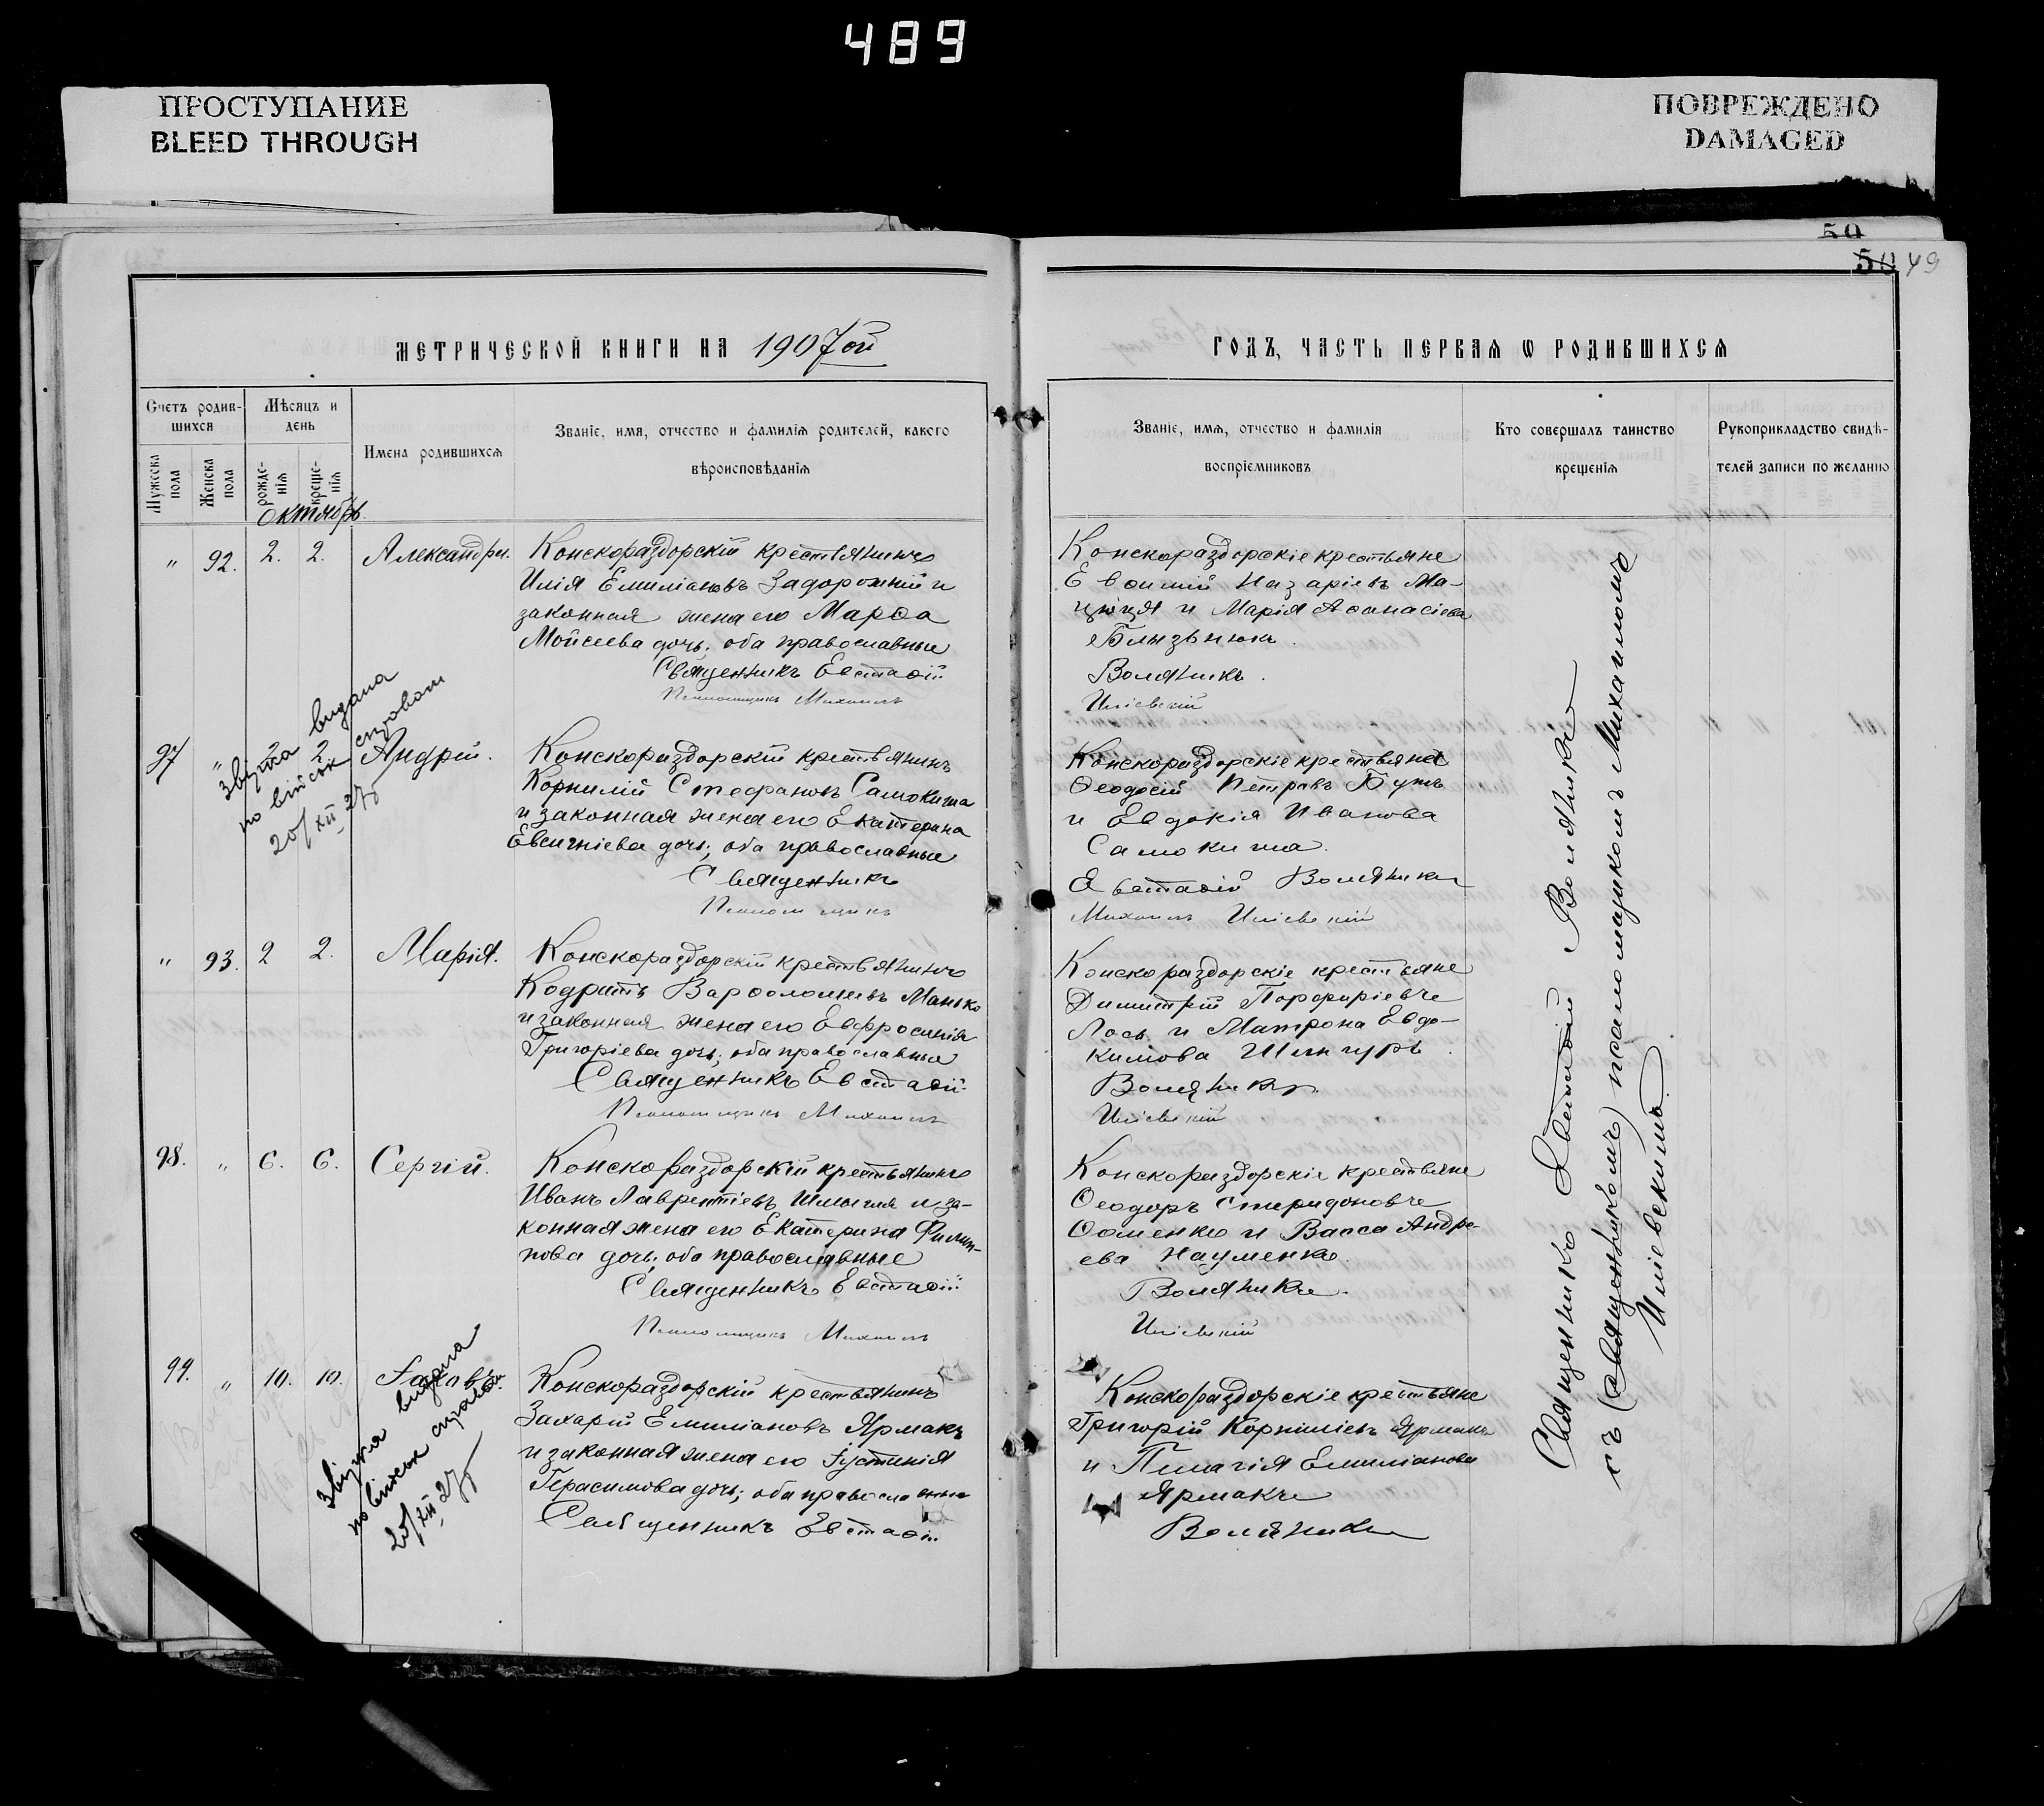 489
ПРОСТУПАНИЕ
BLEED THROUGH
ПОВРЕЖДЕНО
DAMAGED
50
50 49
МЕТРИЧЕСКОЙ КНИГИ НА 1907ой
Счетъ родив-
шихся
Мѣсяцъ и
день
Мужеска пола
Женска пола
рожде-
нія
креще-
нія
Имена родившихся
Званіе, имя, отчество и фамилія родителей, какого
вѣроисповѣданія
Октябрь.
" 92. 2. 2. Александра.
Конскораздорскій крестьянинъ
Илія Емиліановъ Задорожній и
законная жена его Марѳа
Мойсеева дочь; оба православные
Священникъ Евстаѳій
Псаломщикъ Михаилъ
97 " 2 2 Андрій.
Звістка видана
по військ справам
20/XII 27б
Конскораздорскій крестьянинъ
Корнилій Стефановъ Самокиша
и законная жена его Екатерина
Евсигніева дочь; оба православные
Священникъ
Псаломщикъ
" 93. 2 2. Марія.
Конскораздорскій крестьянинъ
Кодратъ Варѳоломеевъ Манько
и законная жена его Евфросинія
Григоріева дочь; оба православные
Священникъ Евстаѳій
Псаломщикъ Михаилъ
98. " 6. 6. Сергій.
Конскораздорскій крестьянинъ
Иванъ Лаврентіевъ Шмыгля и за-
конная жена его Екатерина Филип-
пова дочь, оба православные
Священникъ Евстаѳій
Псаломщикъ Михаилъ
99. " 10. 10. Іаковъ.
Звістка видана
по військ справам
20/XII 27б
Конскораздорскій крестьянинъ
Захарій Емиліановъ Ярмакъ
и законная жена его Іустинія
Герасимова дочь; оба православные
Священникъ Евстаѳій
ГОДЪ, ЧАСТЬ ПЕРВАЯ Ѡ РОДИВШИХСЯ
Званіе, имя, отчество и фамилія
воспріемниковъ
Кто совершалъ таинство
крещенія
Рукоприкладство свидѣ-
телей записи по желанію
Конскораздорскіе крестьяне
Евѳимій Назаріевъ Ма-
цюця и Марія Аѳанасіева
Блызьнюкъ.
Воляникъ.
Иліевскій
Конскораздорскіе крестьяне
Ѳеодосій Петровъ Бутъ
и Евдокія Иванова
Самокиша.
Евстаѳій Воляникъ
Михаилъ Иліевскій
Конскораздорскіе крестьяне
Димитрій Порфиріевъ
Лось и Матрона Евдо-
кимова Шингуръ.
Воляникъ.
Иліевскій
Конскораздорскіе крестьяне
Ѳеодоръ Спиридоновъ
Ѳоменко и Васса Андре-
ева Науменко.
Воляникъ.
Иліевскій
Конскораздорскіе крестьяне
Григорій Корниліевъ Ярмакъ
и Пелагія Емиліанова
Ярмакъ
Воляникъ
Священникъ Евстаѳій Воляникъ
съ (священникомъ) псаломщикомъ Михаиломъ
Иліевскимъ.